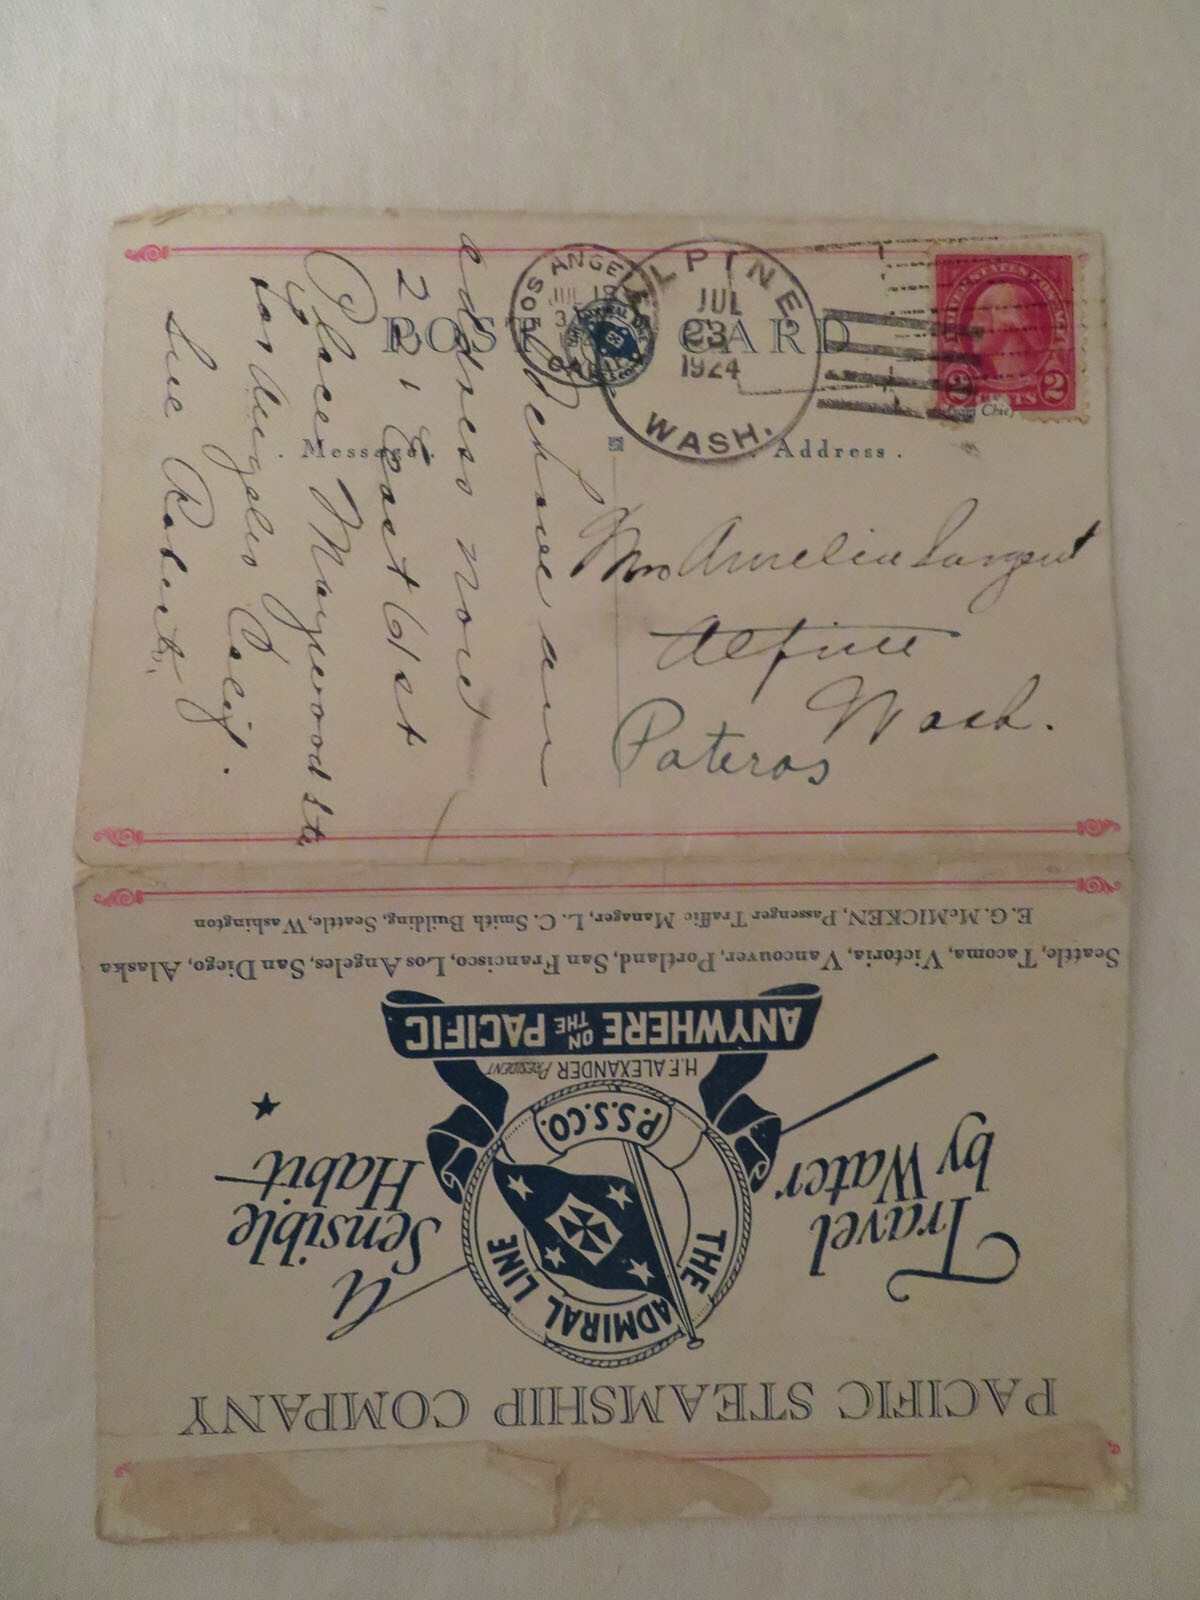 POST CARD
LOS ANGELES
JUL 18
CALIF
ALPINE
JUL
23
1924
WASH.
UNITED STATES POSTAGE
2 CENTS 2
. Message.
. Address .
Mrs Aurelia Sargent
Alpine
Wash.
Pateros
Please
address now
221 East 61st
Place Maywood Sta
Los Angeles Calif.
Sue Roberts
E. G. McMICKEN, Passenger Traffic Manager, L. C. Smith Building, Seattle, Washington
Seattle, Tacoma, Victoria, Vancouver, Portland, San Francisco, Los Angeles, San Diego, Alaska
PACIFIC STEAMSHIP COMPANY
Travel
by Water
A
Sensible
Habit
THE ADMIRAL LINE
P.S.S.CO.
H.F. ALEXANDER PRESIDENT
ANYWHERE ON THE PACIFIC